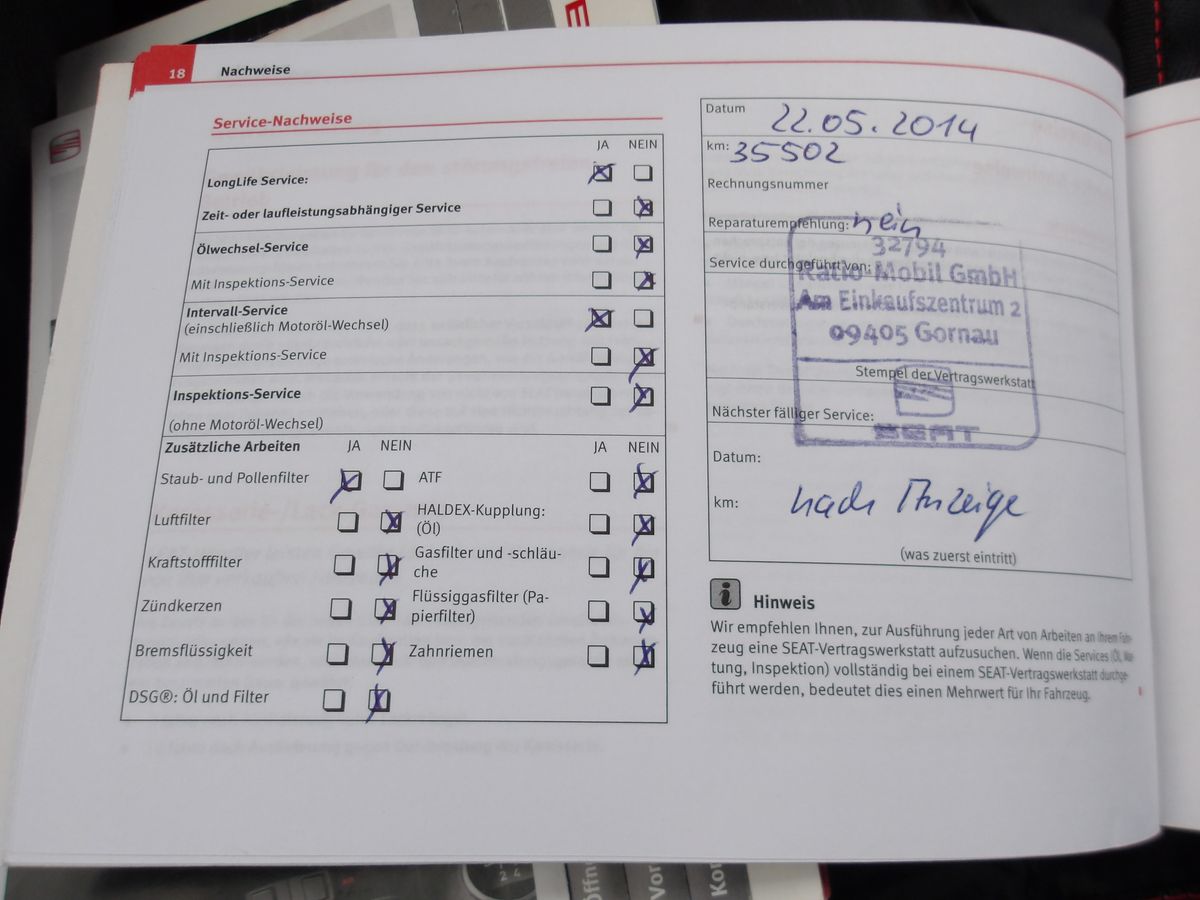 18 Nachweise
Service-Nachweise
JA NEIN
LongLife Service:
Zeit- oder laufleistungsabhängiger Service
Ölwechsel-Service
Mit Inspektions-Service
Intervall-Service
(einschließlich Motoröl-Wechsel)
Mit Inspektions-Service
Inspektions-Service
(ohne Motoröl-Wechsel)
Zusätzliche Arbeiten JA NEIN JA NEIN
Staub- und Pollenfilter ATF
Luftfilter HALDEX-Kupplung:
(Öl)
Kraftstofffilter Gasfilter und -schläu-
che
Zündkerzen Flüssiggasfilter (Pa-
pierfilter)
Bremsflüssigkeit Zahnriemen
DSG®: Öl und Filter
Datum 22.05.2014
km: 35502
Rechnungsnummer
Reparaturempfehlung: nein
32794
Service durchgeführt von:
Ratio Mobil GmbH
Am Einkaufszentrum 2
09405 Gornau
Stempel der Vertragswerkstatt
SEAT
Nächster fälliger Service:
Datum:
km: nach Anzeige
(was zuerst eintritt)
i Hinweis
Wir empfehlen Ihnen, zur Ausführung jeder Art von Arbeiten an Ihrem Fahr-
zeug eine SEAT-Vertragswerkstatt aufzusuchen. Wenn die Services (Öl, War-
tung, Inspektion) vollständig bei einem SEAT-Vertragswerkstatt durchge-
führt werden, bedeutet dies einen Mehrwert für Ihr Fahrzeug.